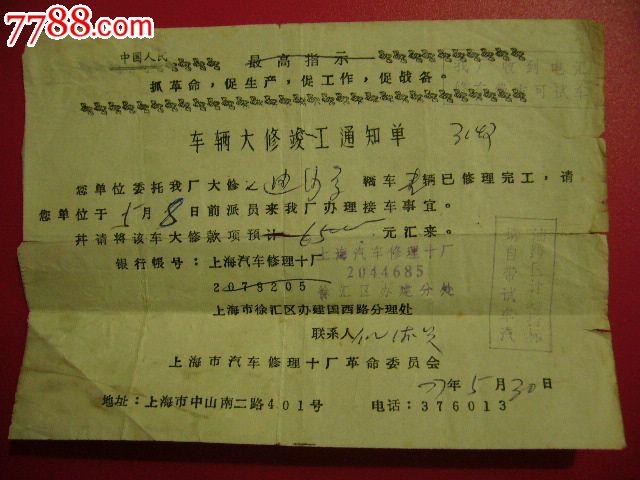 7788.com
中国人民
最高指示
抓革命，促生产，促工作，促战备。
车辆大修竣工通知单
您单位委托我厂大修 轿车 辆已修理完工，请
您单位于 5月8日前派员来我厂办理接车事宜。
并请将该车大修款项预计 6500 元汇来。
银行帐号：上海汽车修理十厂
上海汽车修理十厂
2044685
徐汇区办建分处
2078205
上海市徐汇区办建国西路分理处
联系人
上海市汽车修理十厂革命委员会
77年5月30日
地址：上海市中山南二路401号 电话：376013